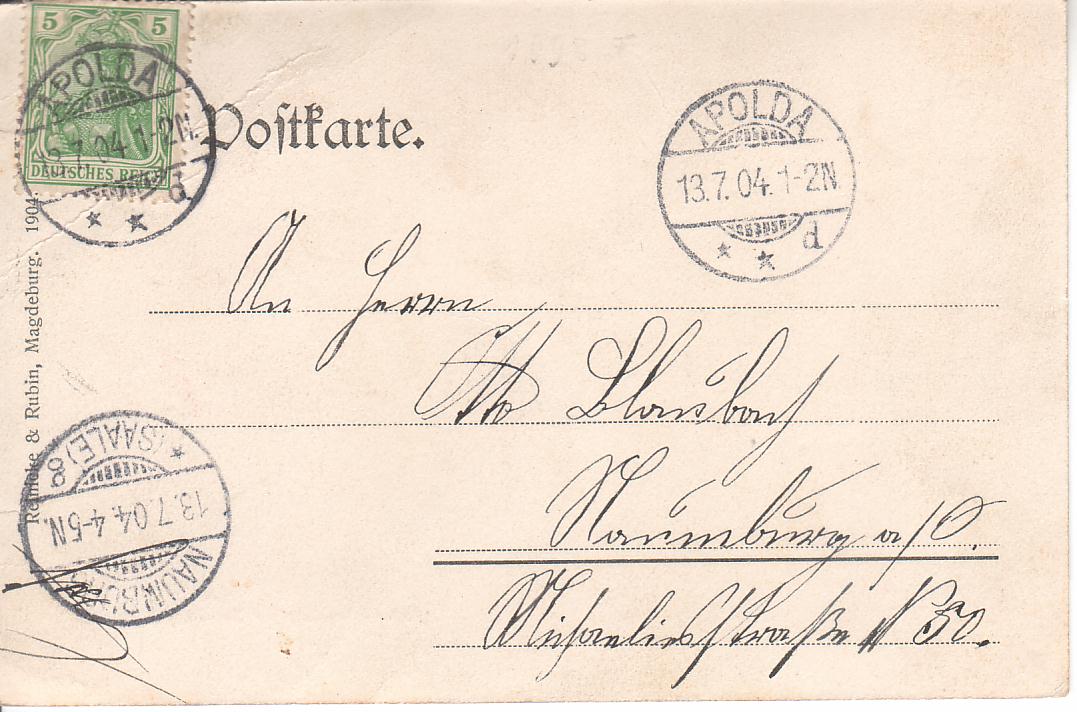 5 5
DEUTSCHES REICH
APOLDA
13.7.04.1-2N.
d
Postkarte.
APOLDA
13.7.04.1-2N
d
An Herrn
Otto Blausbach
Naumburg a/S.
Michaelisstraße N 30.
Reinicke & Rubin, Magdeburg. 1904.
NAUMBURG
13.7.04.4-5N.
* (SAALE) 8